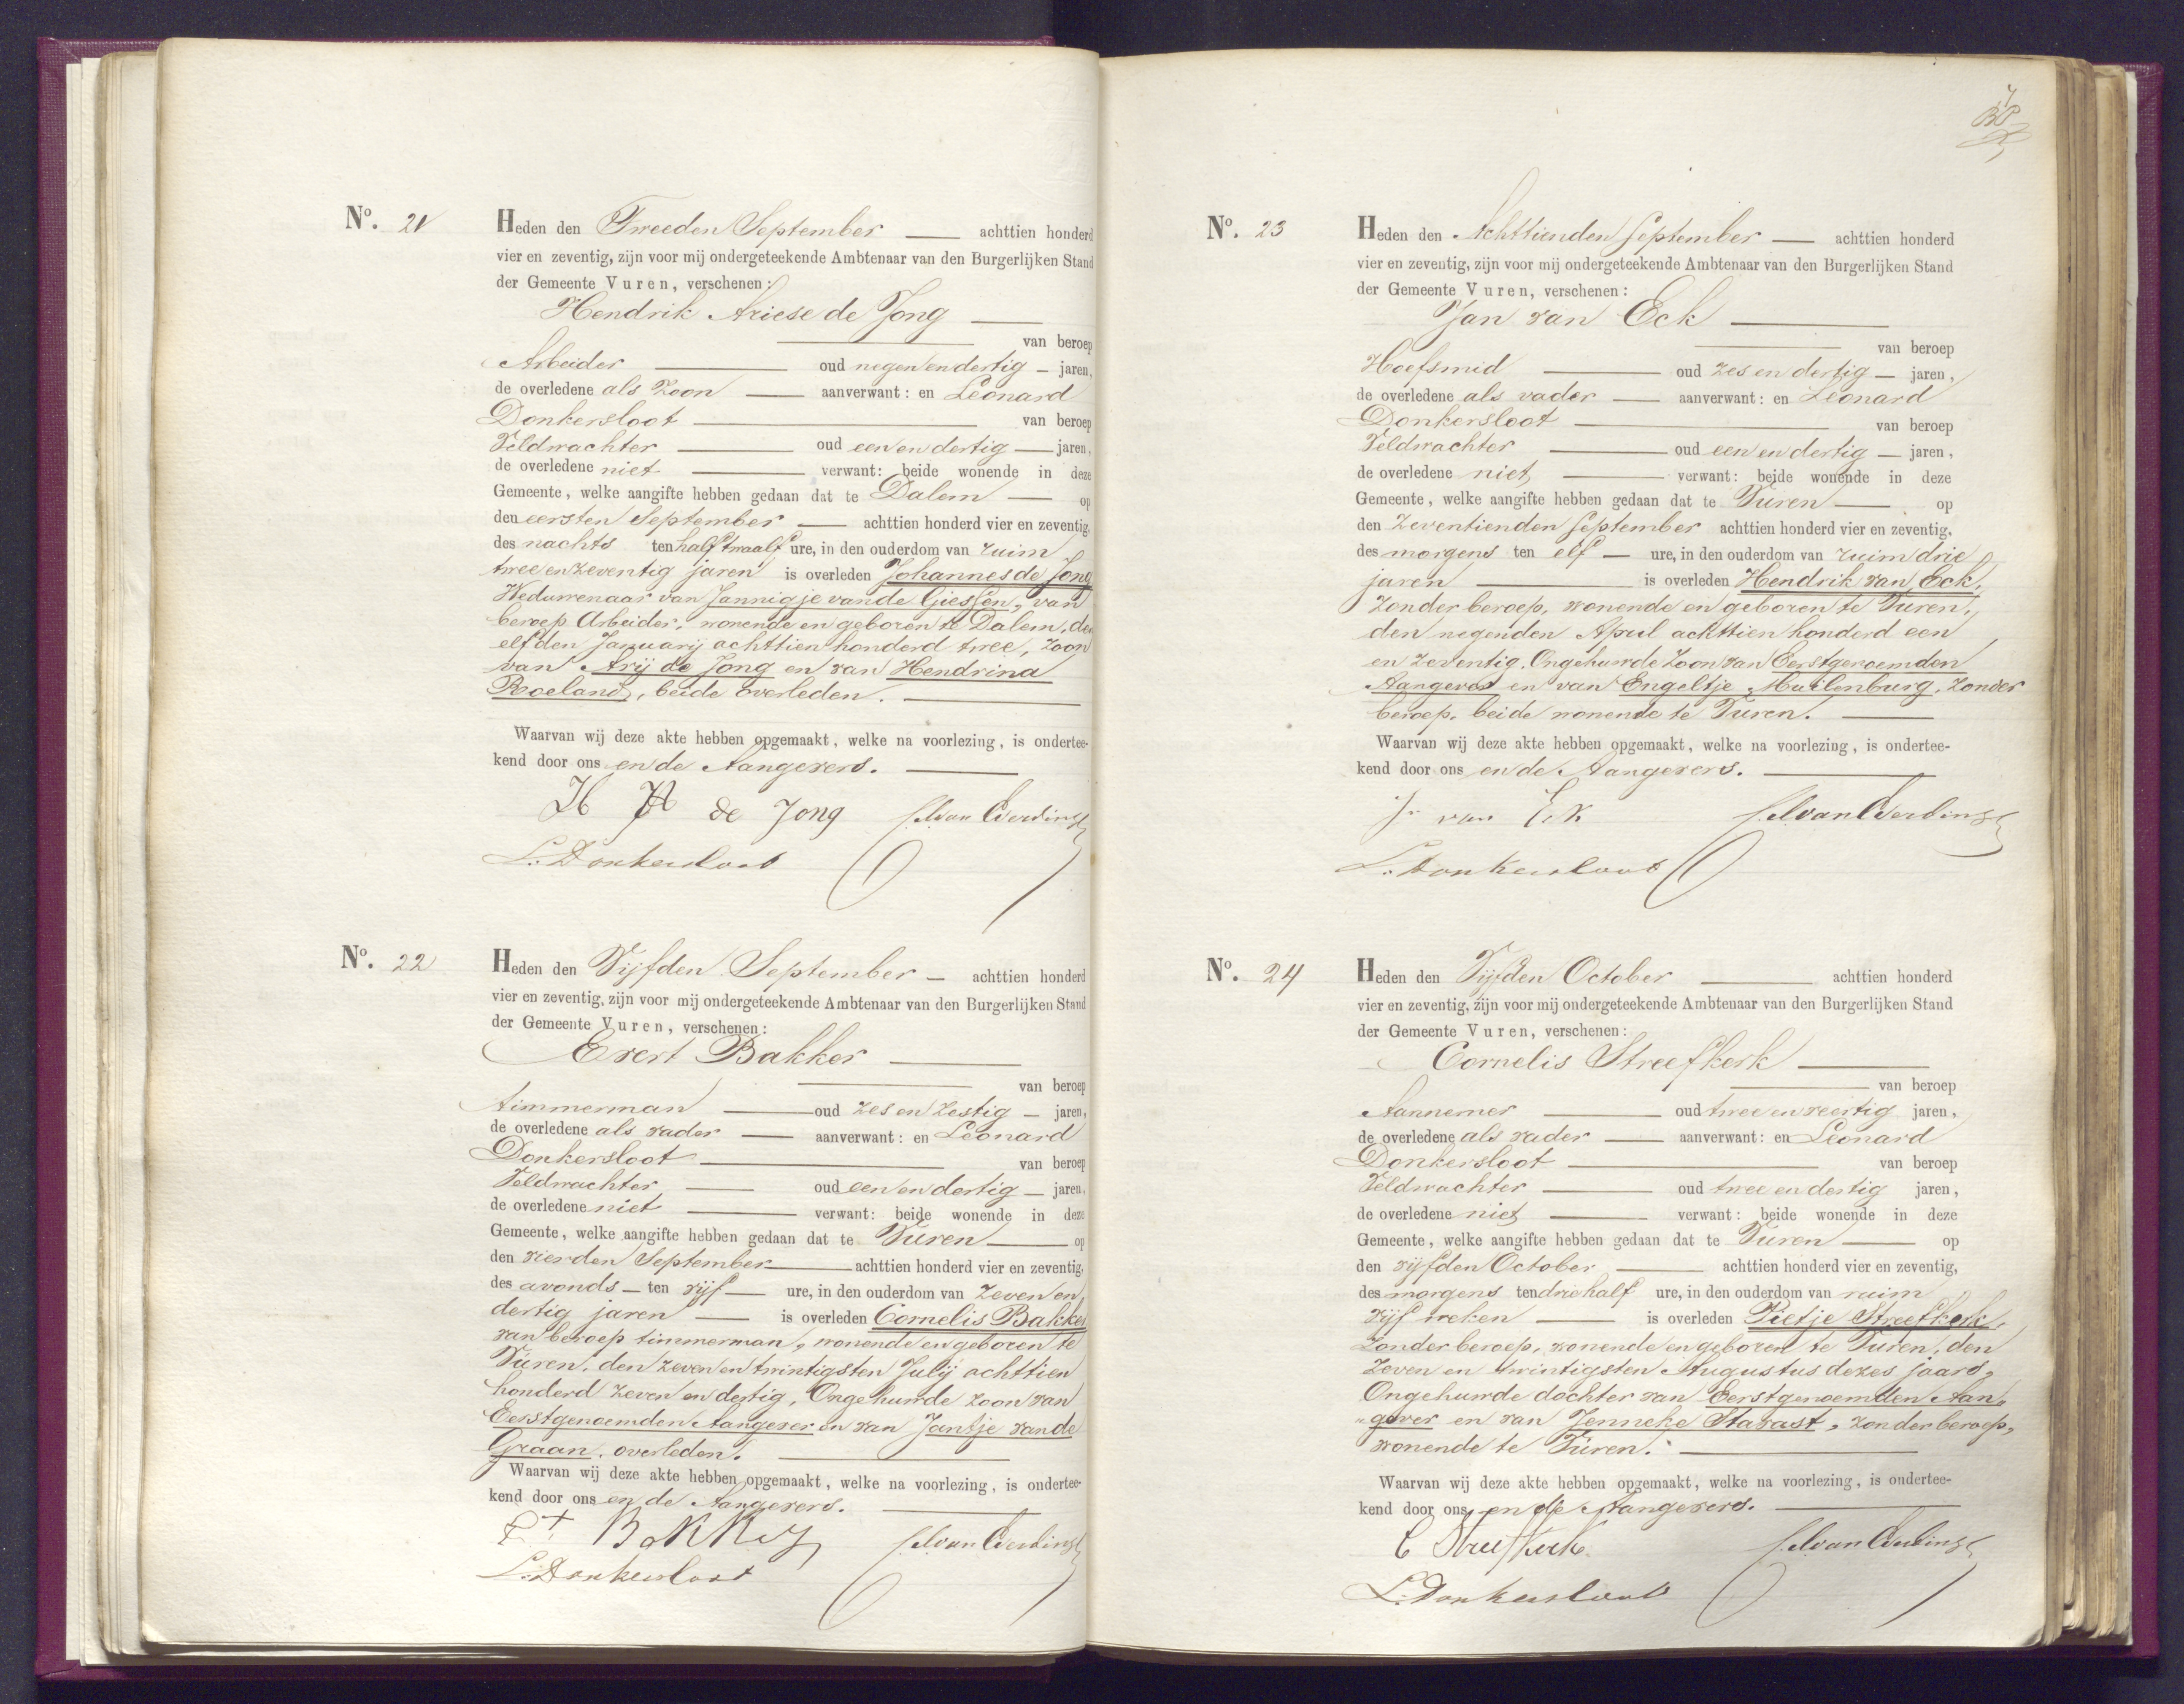 No. 21
Heden den Tweeden September — achttien honderd
vier en zeventig, zijn voor mij ondergeteekende Ambtenaar van den Burgerlijken Stand
der Gemeente Vuren, verschenen:
Hendrik Ariese de Jong —
— van beroep
Arbeider — oud negen en dertig — jaren,
de overledene als Zoon — aanverwant: en Leonard
Donkersloot — van beroep
Veldwachter — oud een en dertig — jaren,
de overledene niet — verwant: beide wonende in deze
Gemeente, welke aangifte hebben gedaan dat te Dalem — op
den eersten September — achttien honderd vier en zeventig,
des nachts ten half twaalf ure, in den ouderdom van ruim
twee en zeventig jaren is overleden Johannes de Jong
Weduwenaar van Jannigje van de Giessen, van
beroep Arbeider, wonende en geboren te Dalem, den
elfden Januarij achttien honderd twee, zoon
van Arij de Jong en van Hendrina
Roeland, beide overleden. —
Waarvan wij deze akte hebben opgemaakt, welke na voorlezing, is ondertee-
kend door ons en de Aangevers. —
H A de Jong
L. Donkersloot
No. 22
Heden den Vijfden September — achttien honderd
vier en zeventig, zijn voor mij ondergeteekende Ambtenaar van den Burgerlijken Stand
der Gemeente Vuren, verschenen:
Evert Bakker —
— van beroep
timmerman — oud zes en zestig — jaren,
de overledene als vader — aanverwant: en Leonard
Donkersloot — van beroep
Veldwachter — oud een en dertig — jaren,
de overledene niet — verwant: beide wonende in deze
Gemeente, welke aangifte hebben gedaan dat te Vuren — op
den vierden September — achttien honderd vier en zeventig,
des avonds — ten vijf — ure, in den ouderdom van zeven en
dertig jaren — is overleden Cornelis Bakker
van beroep timmerman, wonende en geboren te
Vuren, den zeven en twintigsten Julij achttien
honderd zeven en dertig, Ongehuwde zoon van
Eerstgenoemden Aangever en van Jantje van de
Graan, overleden. —
Waarvan wij deze akte hebben opgemaakt, welke na voorlezing, is ondertee-
kend door ons en de Aangevers. —
Et Bakker
L. Donkersloot
No. 23
Heden den Achttienden September — achttien honderd
vier en zeventig, zijn voor mij ondergeteekende Ambtenaar van den Burgerlijken Stand
der Gemeente Vuren, verschenen:
Jan van Eck —
— van beroep
Hoefsmid — oud zes en dertig — jaren,
de overledene als vader — aanverwant: en Leonard
Donkersloot — van beroep
Veldwachter — oud een en dertig — jaren,
de overledene niet — verwant: beide wonende in deze
Gemeente, welke aangifte hebben gedaan dat te Vuren — op
den Zeventienden September achttien honderd vier en zeventig,
des morgens ten elf — ure, in den ouderdom van ruim drie
jaren — is overleden Hendrik van Eck,
Zonder beroep, wonende en geboren te Vuren,
den negenden April achttien honderd een
en zeventig, Ongehuwde Zoon van Eerstgenoemden
Aangever en van Engeltje Muilenburg, zonder
beroep, beide wonende te Vuren. —
Waarvan wij deze akte hebben opgemaakt, welke na voorlezing, is ondertee-
kend door ons en de Aangevers. —
J. van Eck
L. Donkersloot
No. 24
Heden den Vijfden October — achttien honderd
vier en zeventig, zijn voor mij ondergeteekende Ambtenaar van den Burgerlijken Stand
der Gemeente Vuren, verschenen:
Cornelis Streefkerk —
— van beroep
Aannemer — oud twee en veertig jaren,
de overledene als vader — aanverwant: en Leonard
Donkersloot — van beroep
Veldwachter — oud twee en dertig jaren,
de overledene niet — verwant: beide wonende in deze
Gemeente, welke aangifte hebben gedaan dat te Vuren — op
den vijfden October — achttien honderd vier en zeventig,
des morgens ten drie half ure, in den ouderdom van ruim
vijf weken — is overleden Pietje Streefkerk,
Zonder beroep, wonende en geboren te Vuren, den
zeven en twintigsten Augustus dezes jaars,
Ongehuwde dochter van Eerstgenoemden Aan„
„gever en van Jenneke Stavast, zonder beroep,
wonende te Vuren. —
Waarvan wij deze akte hebben opgemaakt, welke na voorlezing, is ondertee-
kend door ons en de Aangevers. —
C Streefkerk
L. Donkersloot